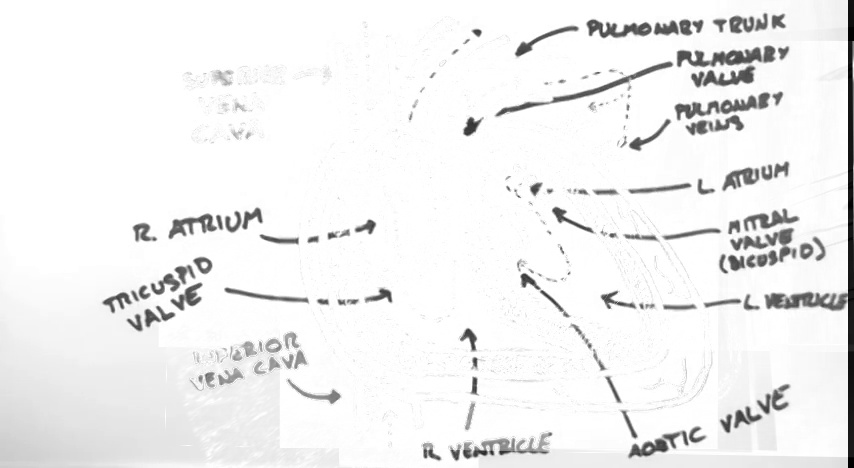 PULMONARY TRUNK
PULMONARY
VALVE
SUPERIOR
VENA
CAVA
PULMONARY
VEINS
L. ATRIUM
R. ATRIUM
MITRAL
VALVE
(BICUSPID)
TRICUSPID
VALVE
L. VENTRICLE
INFERIOR
VENA CAVA
R VENTRICLE
AORTIC VALVE